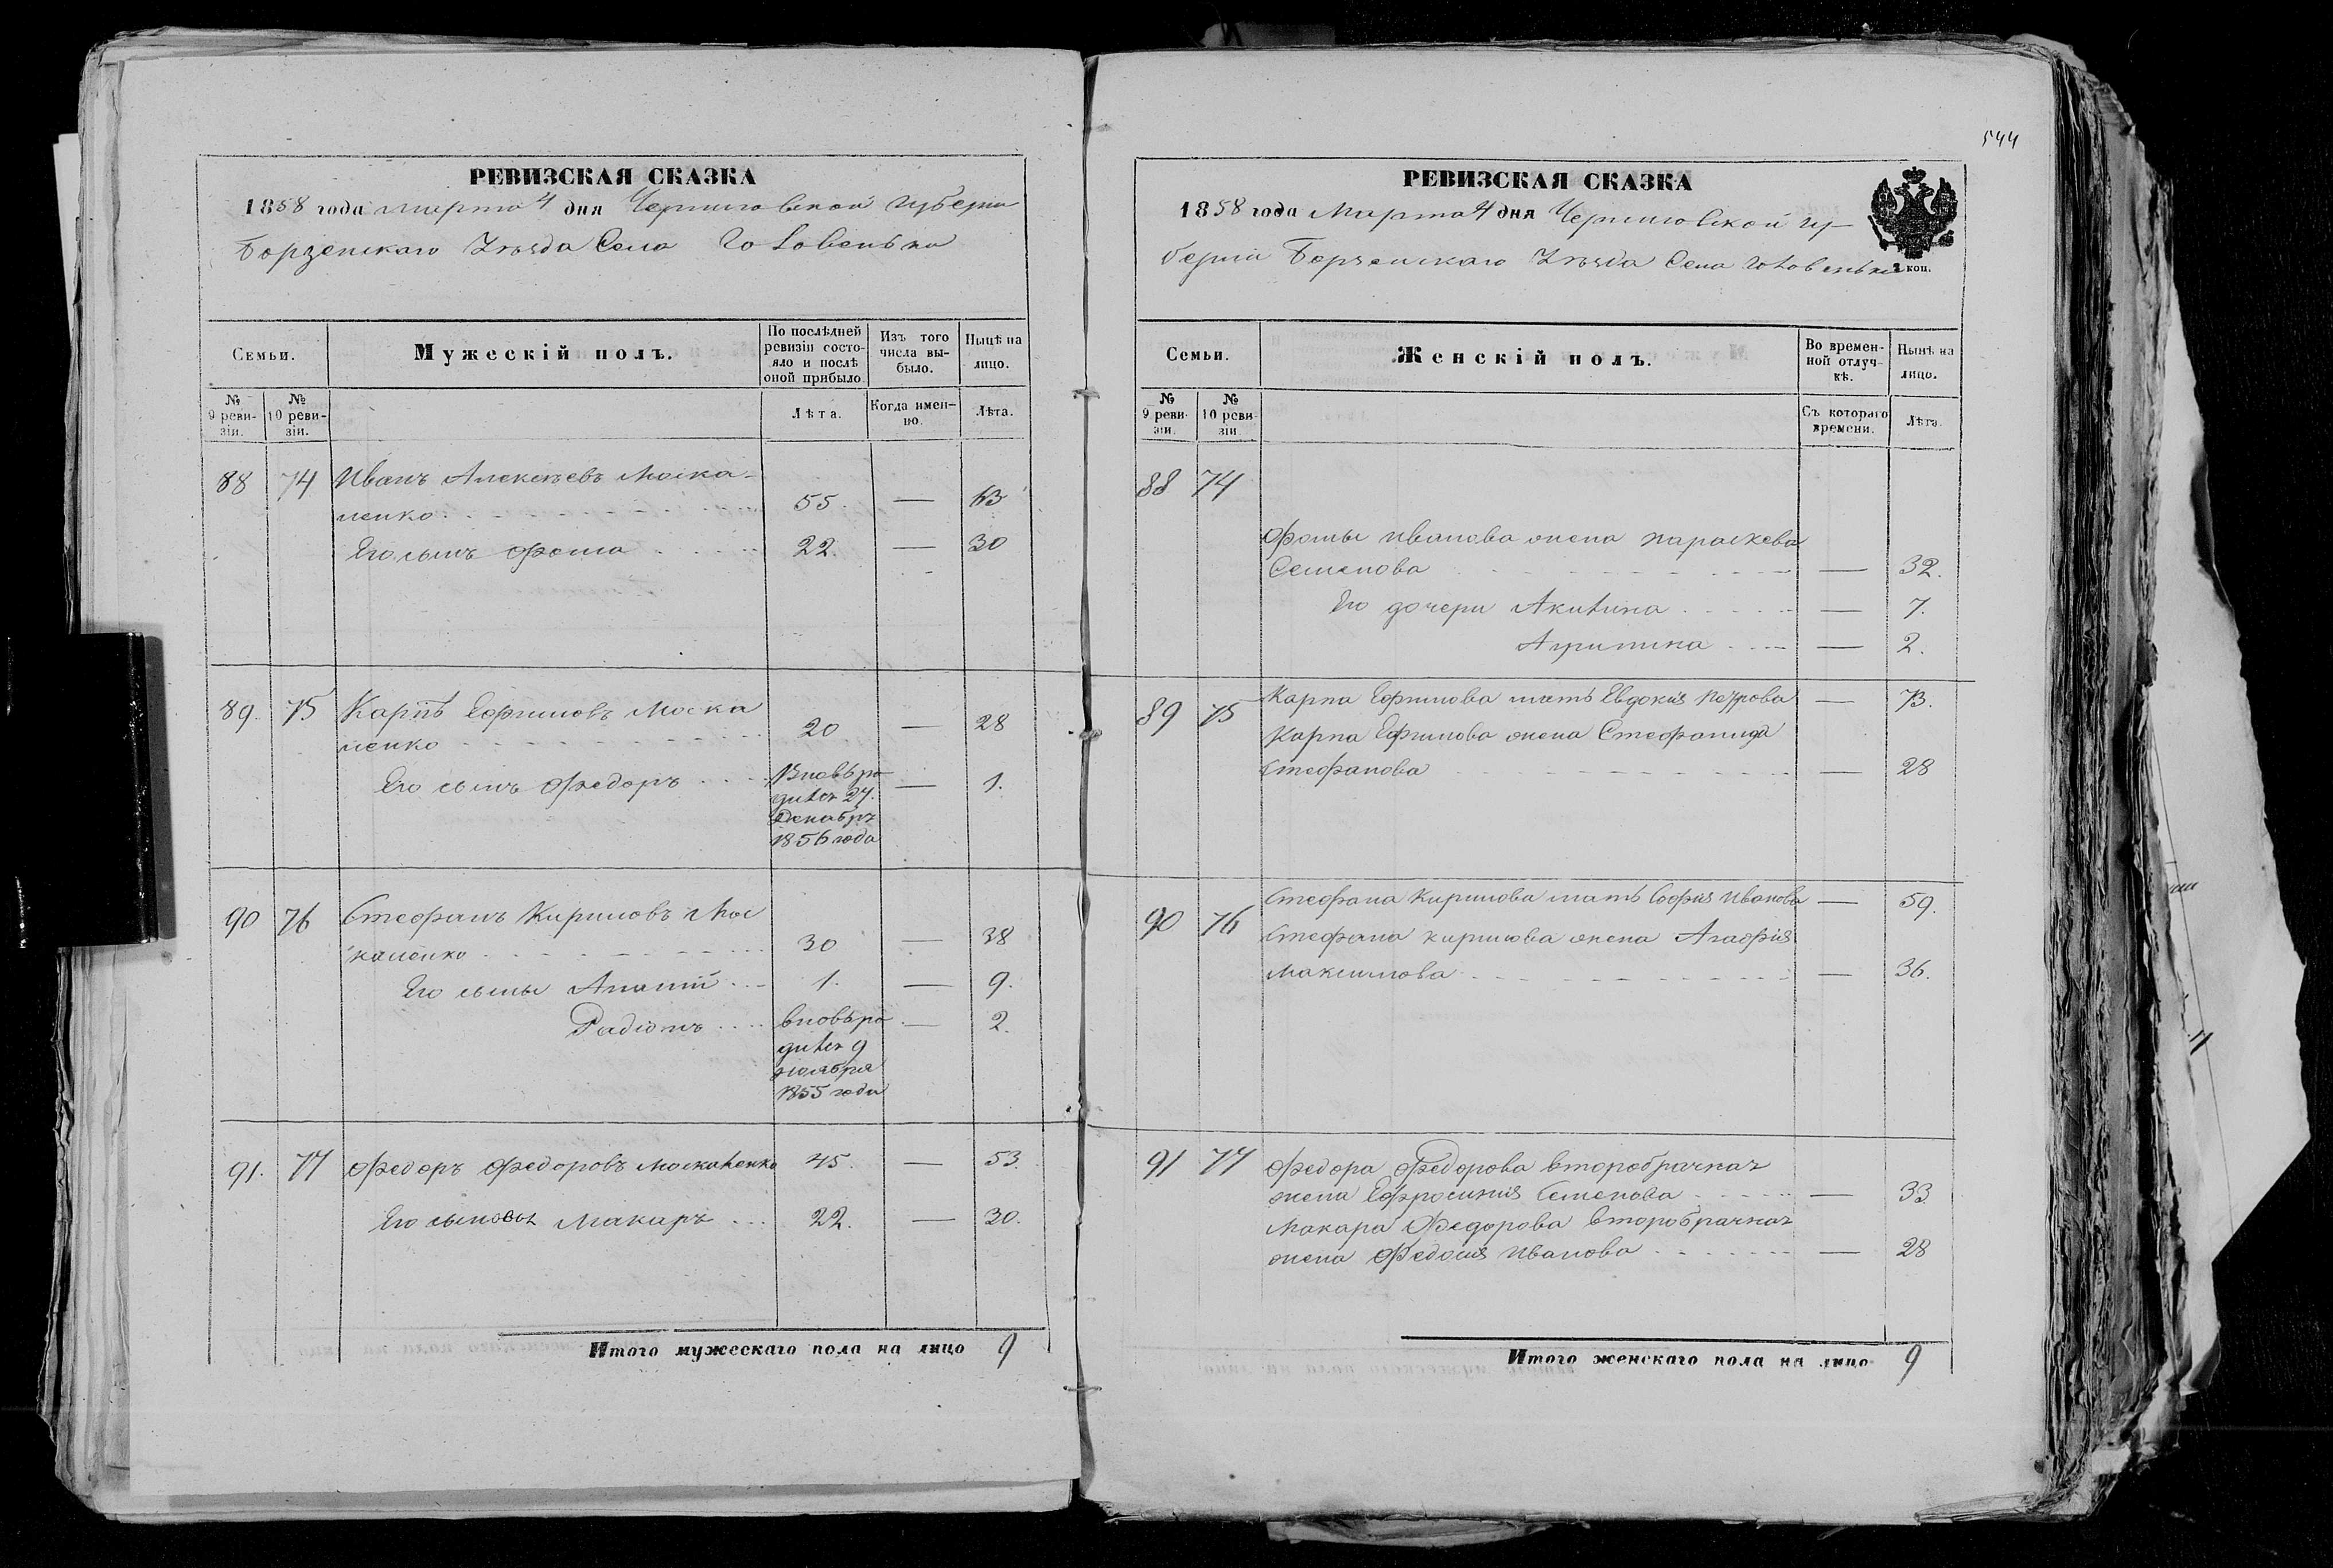 РЕВИЗСКАЯ СКАЗКА
1858 года Марта 4 дня Черниговской губерніи
Борзенскаго Уѣзда Села Головеньки
Семьи.
Мужескій полъ.
По послѣдней ревизіи состояло и послѣ оной прибыло
Изъ того числа выбыло.
Нынѣ на лицо.
№ 9 ревизіи.
№ 10 ревизіи.
Лѣта.
Когда именно.
Лѣта.
88 74 Иванъ Алексѣевъ Моска-
ленко 55. — 63
Его сынъ Фома 22. — 30
89. 75 Карпъ Ефимовъ Моска
ленко 20 — 28
Его сынъ Федоръ Вновь ро — 1.
дился 27.
Декабря
1856 года
90 76 Стефанъ Кириловъ Мос
каленко 30 — 38
Его сыны Ананій 1. — 9.
Радіонъ вновь ро — 2.
дился 9
ноября
1855 года
91. 77 Федоръ Федоровъ Москаленко 45. — 53.
Его сыновья Макаръ 22. — 30.
Итого мужескаго пола на лицо 9
544
РЕВИЗСКАЯ СКАЗКА
1858 года Марта 4 дня Черниговской гу-
берніи Борзенскаго Уѣзда Села Головеньки
коп.
Семьи.
Женскій полъ.
Во временной отлучкѣ.
Нынѣ на лицо.
№ 9 ревизіи.
№ 10 ревизіи
Съ котораго времени.
Лѣта.
88 74
Фомы Иванова жена Параскева
Семенова — 32.
Его дочери Акилина — 7.
Агрипина — 2.
89 75 Карпа Ефимова мать Евдокія Петрова — 73.
Карпа Ефимова жена Стефанида
Стефанова — 28
90 76 Стефана Кирилова мать Софія Иванова — 59.
Стефана Кирилова жена Агафія
Максимова — 36.
91 77 Федора Федорова второбрачная
жена Ефросинія Семенова — 33
Макара Федорова второбрачная
жена Федосія Иванова — 28
Итого женскаго пола на лицо 9